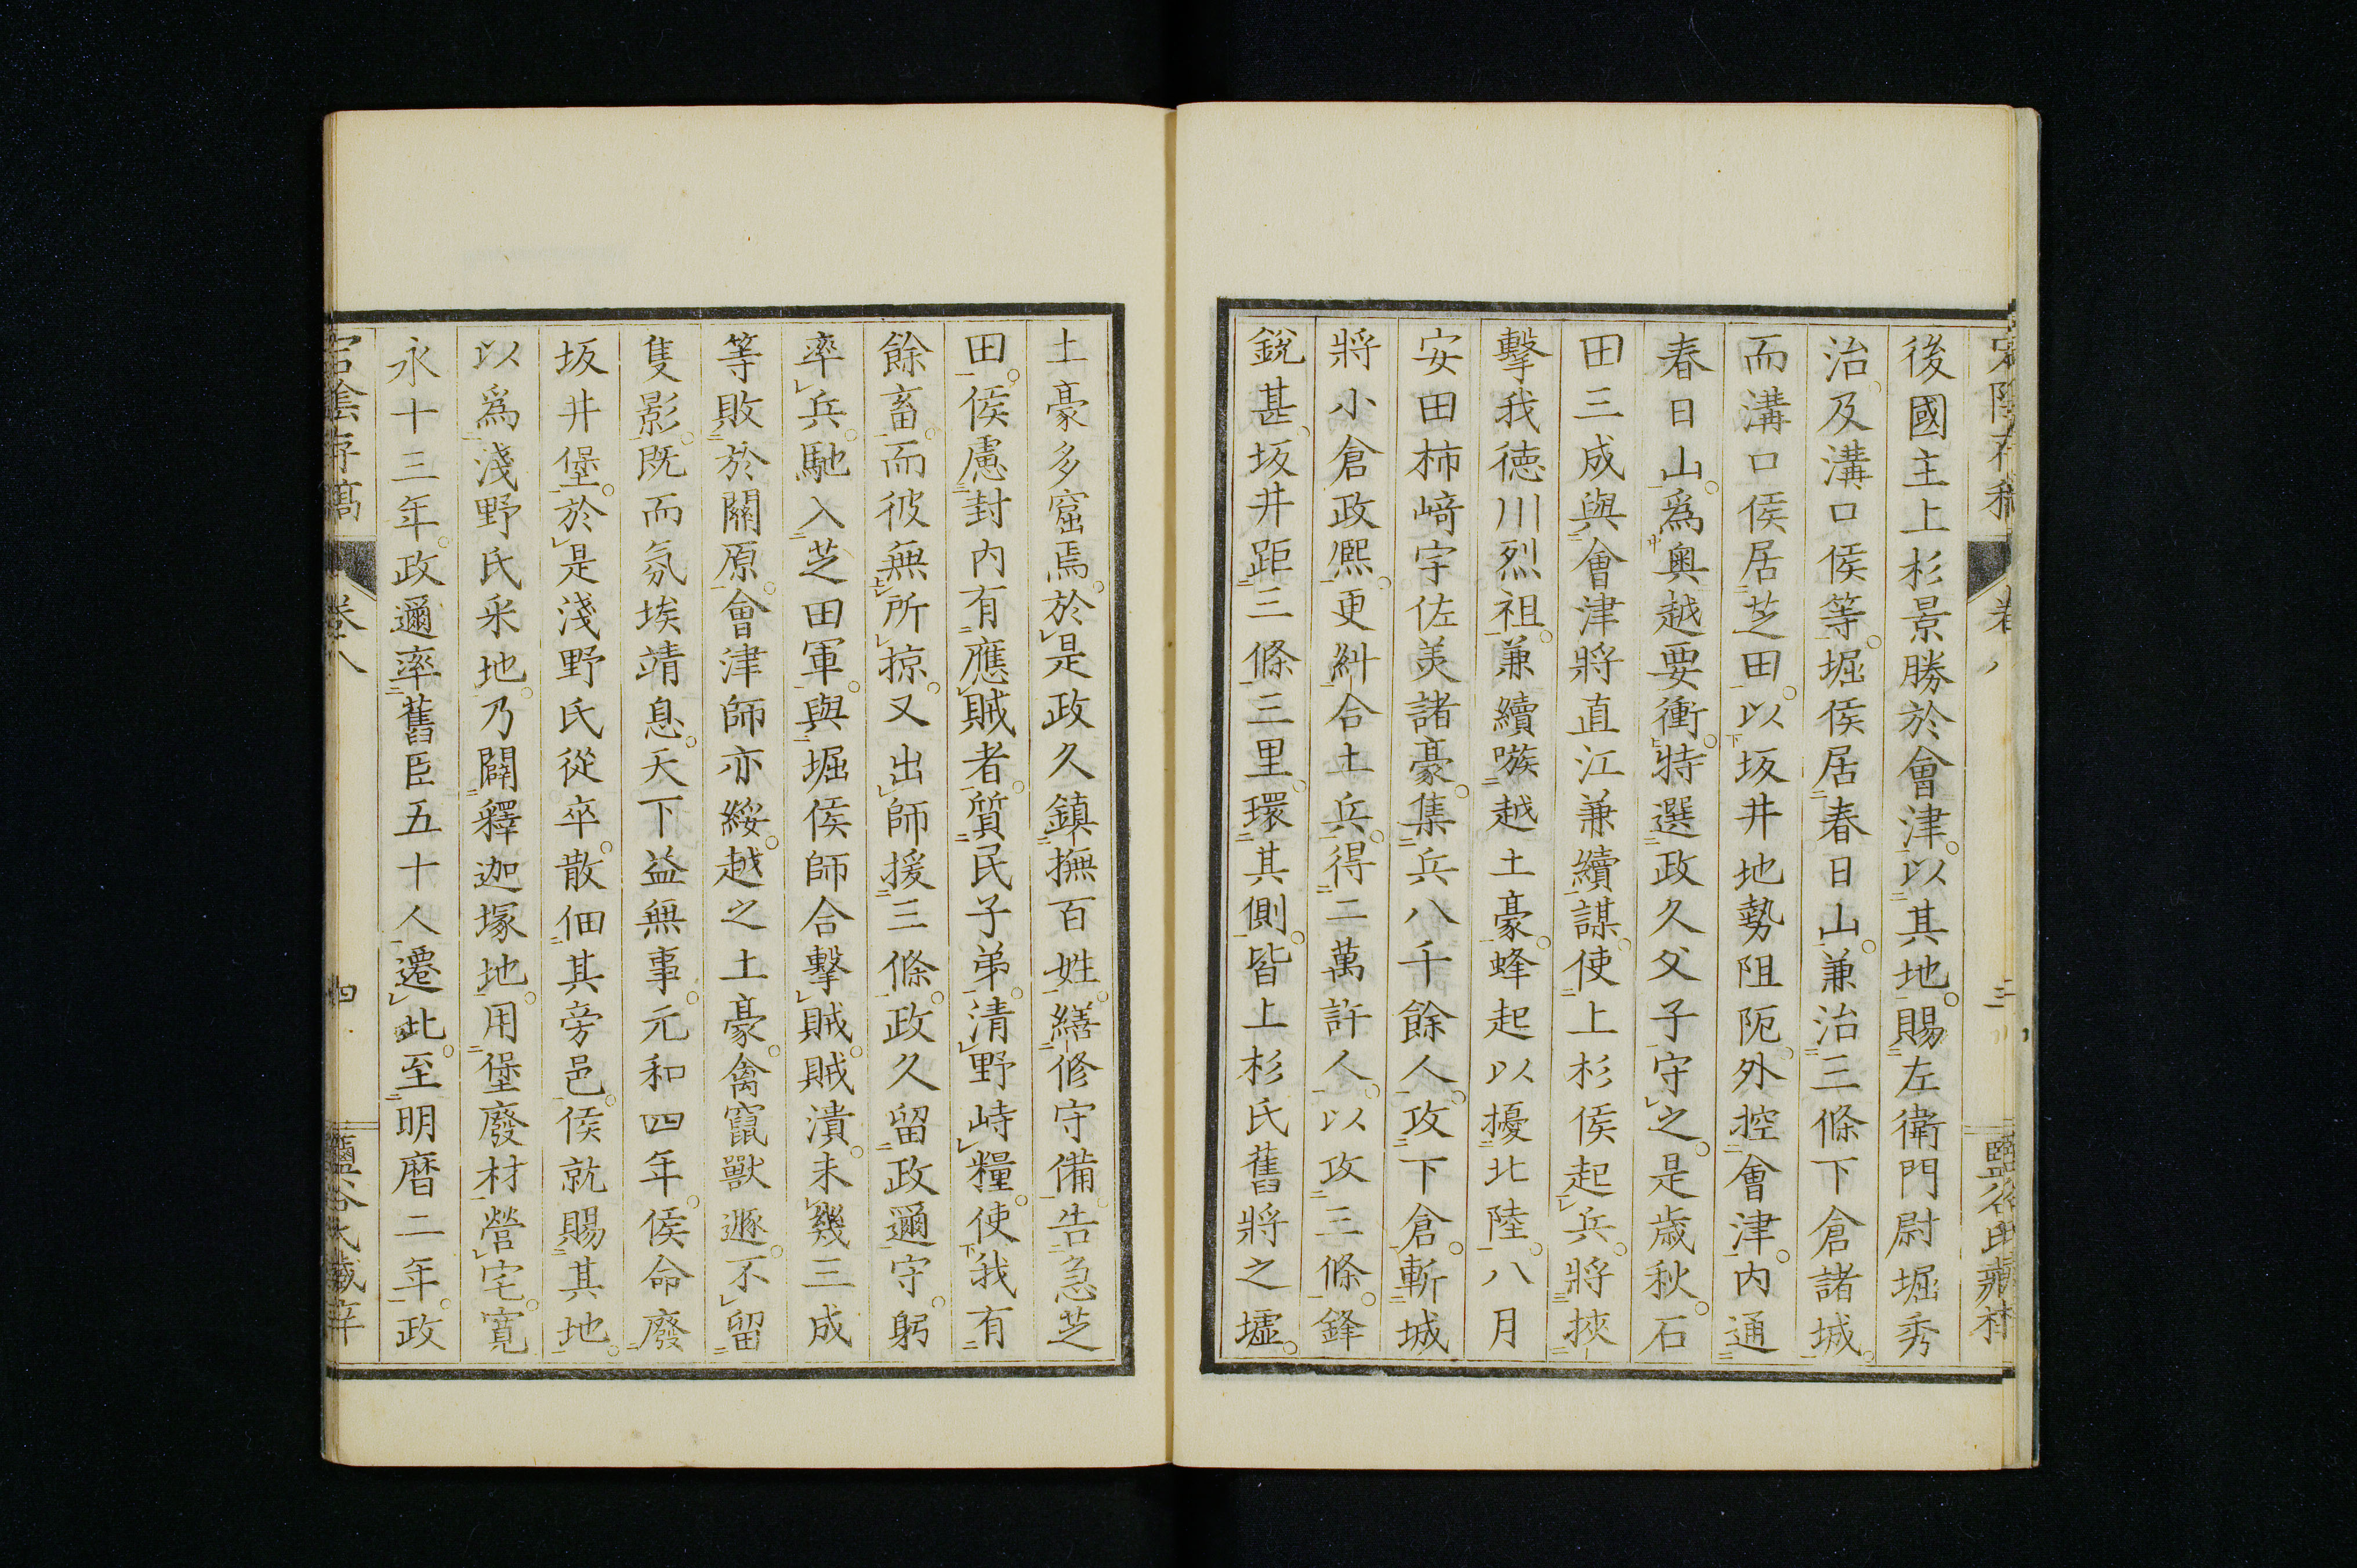 後國主上杉景勝於會津。以其地。賜左衛門尉堀秀
治。及溝口侯等。堀侯居春日山。兼治三條下倉諸城。
而溝口侯居芝田。以坂井地勢阻阨。外控會津。内通
春日山。爲奥越要衝。特選政久父子守之。是歳秋。石
田三成與會津將直江兼續謀。使上杉侯起兵。將挾
擊我徳川烈祖。兼續嗾越土豪。蜂起以擾北陸。八月
安田柿﨑宇佐美諸豪。集兵八千餘人。攻下倉。斬城
將小倉政凞。更糾合土兵。得二萬許人。以攻三條。鋒
鋭甚。坂井距三條三里。環其側。皆上杉氏舊將之墟。
土豪多窟焉。於是政久鎮撫百姓。繕修守備。告急芝
田。侯慮封内有應賊者。質民子弟。清野峙糧。使我有
餘畜。而彼無所掠。又出師援三條。政久留政邇守。躬
率兵。馳入芝田軍。與堀侯師合擊賊。賊潰。未幾三成
等敗於關原。會津師亦綏。越之土豪。禽竄獸遯。不留
隻影。既而氛埃靖息。天下益無事。元和四年。侯命廢
坂井堡。於是淺野氏從卒。散佃其旁邑。侯就賜其地。
以爲淺野氏釆地。乃闢釋迦塚地。用堡廢材。營宅。寛
永十三年。政邇率舊臣五十人遷此。至明曆二年。政
卷八
四